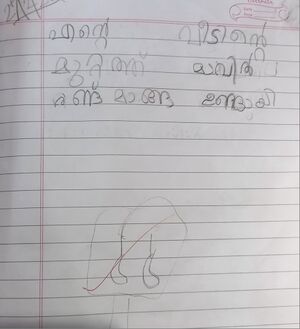 എന്റെ വീടിന്റെ
മുറ്റത്ത് മാവിൽ
രണ്ട് മാങ്ങ ഉണ്ടായി